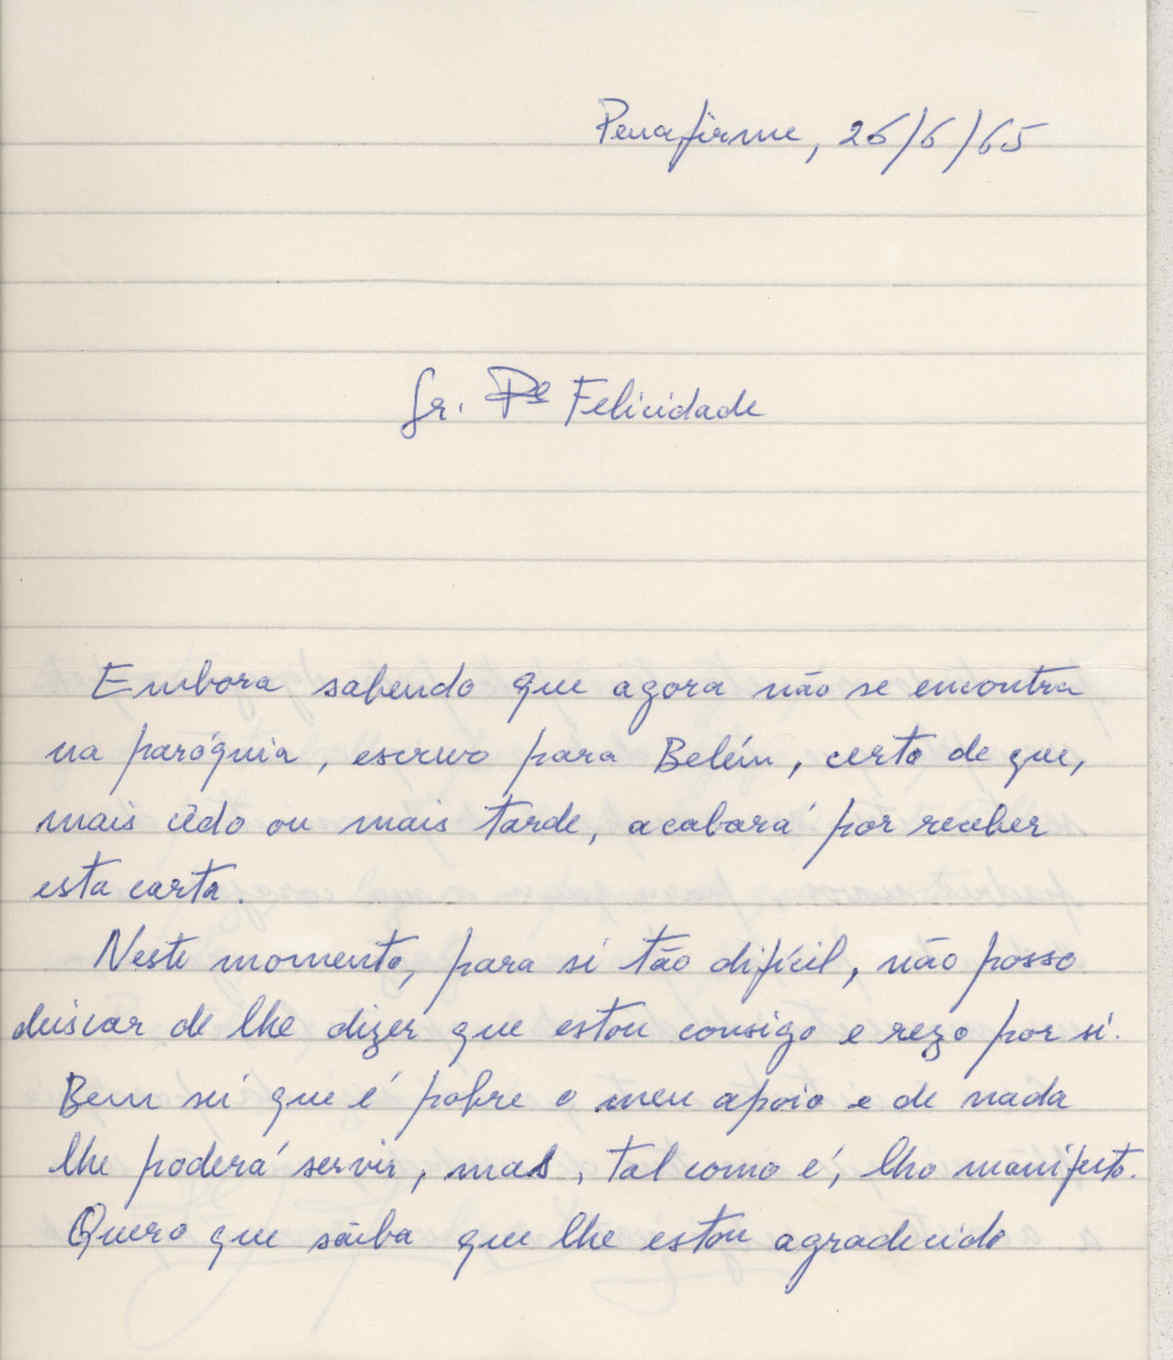 Penafirme, 26/6/65
Sr. Pe Felicidade
Embora sabendo que agora não se encontra
na paróquia, escrevo para Belém, certo de que,
mais cêdo ou mais tarde, acabará por receber
esta carta.
Neste momento, para si tão difícil, não posso
deixar de lhe dizer que estou consigo e rezo por si.
Bem sei que é pobre o meu apoio e de nada
lhe poderá servir, mas, tal como é, lho manifesto.
Quero que sáiba que lhe estou agradecido